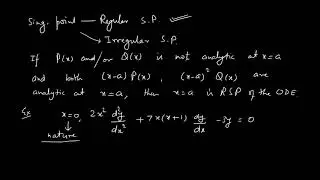 Sing. point → Regular S.P.
→ Irregular S.P.
If P(x) and/or Q(x) is not analytic at x=a
and both (x-a) P(x), (x-a)² Q(x) are
analytic at x=a, then x=a is RSP of the ODE.
Ex x=0, 2x² d²y/dx² + 7x(x+1) dy/dx - 3y = 0
nature